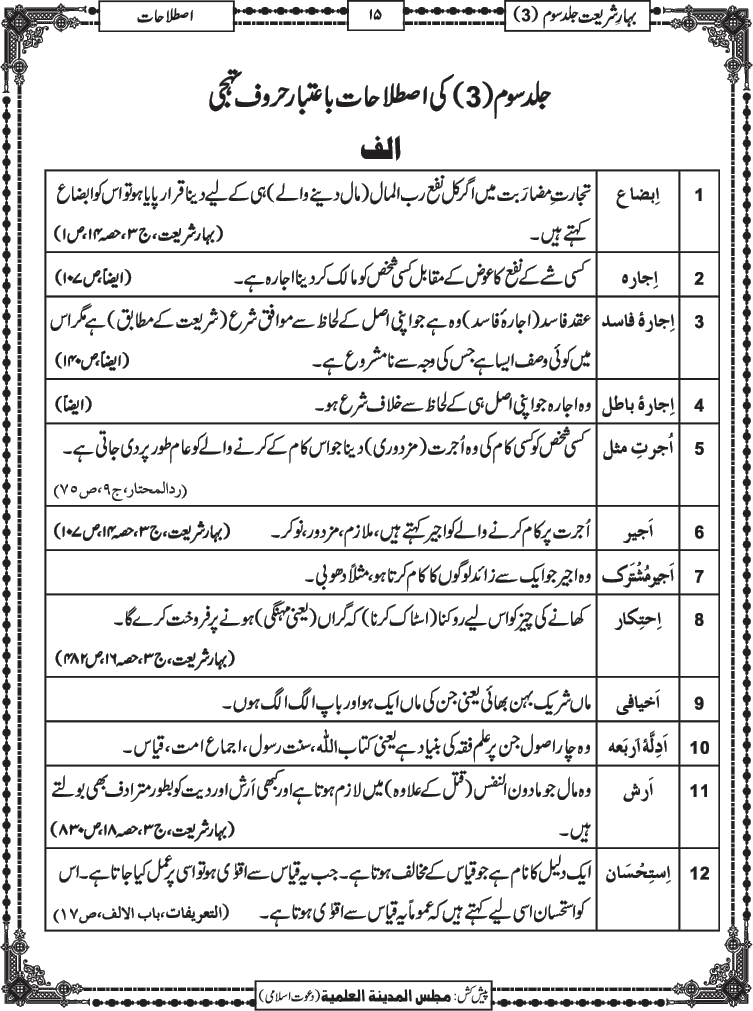 بہارِ شریعت جلد سوم (3)
۱۵
اصطلاحات
جلد سوم (3) کی اصطلاحات باعتبار حروف تہجی
الف
1 اِبضاع تجارتِ مضارَبت میں اگر کل نفع رب المال (مال دینے والے) ہی کے لیے دینا قرار پایا ہو تو اس کو ابضاع
کہتے ہیں۔ (بہارِ شریعت، ج۳، حصہ ۱۴، ص۱)
2 اِجارہ کسی شے کے نفع کا عوض کے مقابل کسی شخص کو مالک کر دینا اجارہ ہے۔ (ایضاً، ص۱۰۷)
3 اِجارۂ فاسد عقد فاسد (اجارۂ فاسد) وہ ہے جو اپنی اصل کے لحاظ سے موافق شرع (شریعت کے مطابق) ہے مگر اس
میں کوئی وصف ایسا ہے جس کی وجہ سے نامشروع ہے۔ (ایضاً، ص۱۴۰)
4 اِجارۂ باطل وہ اجارہ جو اپنی اصل ہی کے لحاظ سے خلاف شرع ہو۔ (ایضاً)
5 اُجرتِ مثل کسی شخص کو کسی کام کی وہ اُجرت (مزدوری) دینا جو اس کام کے کرنے والے کو عام طور پر دی جاتی ہے۔
(ردالمحتار، ج۹، ص۷۵)
6 اَجیر اُجرت پر کام کرنے والے کو اجیر کہتے ہیں، ملازم، مزدور، نوکر۔ (بہارِ شریعت، ج۳، حصہ ۱۴، ص۱۰۷)
7 اَجیر مُشْتَرک وہ اجیر جو ایک سے زائد لوگوں کا کام کرتا ہو، مثلاً دھوبی۔
8 اِحتِکار کھانے کی چیز کو اس لیے روکنا (اسٹاک کرنا) کہ گراں (یعنی مہنگی) ہونے پر فروخت کرے گا۔
(بہارِ شریعت، ج۳، حصہ ۱۶، ص۴۸۲)
9 اَخیافی ماں شریک بہن بھائی یعنی جن کی ماں ایک ہو اور باپ الگ الگ ہوں۔
10 اَدِلَّۂ اَربَعہ وہ چار اصول جن پر علم فقہ کی بنیاد ہے یعنی کتاب اللہ، سنت رسول، اجماع امت، قیاس۔
11 اَرش وہ مال جو مادون النفس (قتل کے علاوہ) میں لازم ہوتا ہے اور کبھی اَرش اور دیت کو بطور مترادف بھی بولتے
ہیں۔ (بہارِ شریعت، ج۳، حصہ ۱۸، ص۸۳۰)
12 اِستِحْسَان ایک دلیل کا نام ہے جو قیاس کے مخالف ہوتا ہے۔ جب یہ قیاس سے اقوٰی ہو تو اسی پر عمل کیا جاتا ہے۔ اس
کو استحسان اسی لیے کہتے ہیں کہ عموماً یہ قیاس سے اقوٰی ہوتا ہے۔ (التعریفات، باب الالف، ص۱۷)
پیش کش: مجلس المدینة العلمیة (دعوتِ اسلامی)